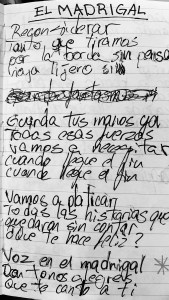 EL MADRIGAL
Reconsiderar
Tanto que tiramos
por la borda sin pensar
haya lijero sin
Guarda tus manos ya
Todas esas fuerzas
vamos a necesitar
cuando llegue el fin
cuando llegue el fin
Vamos a platicar
Todas las historias que
quedaran sin contar
o que te hace feliz?
Voz en el madrigal
Dan tonos alegres
Que te canto a ti